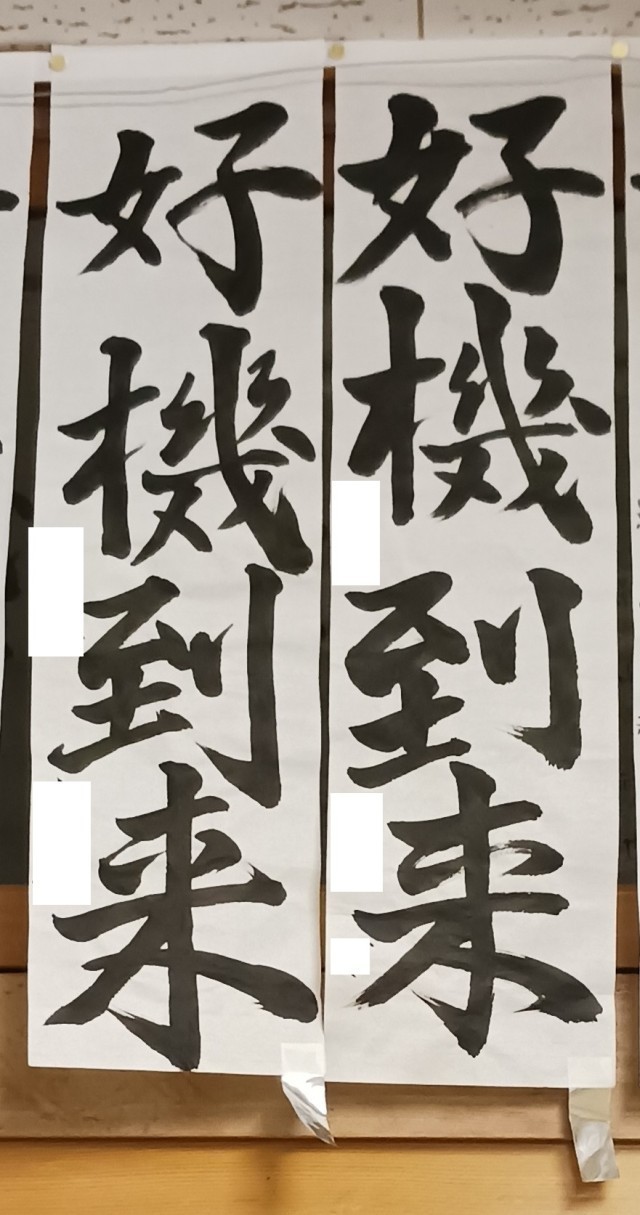 好機到来
好機到来